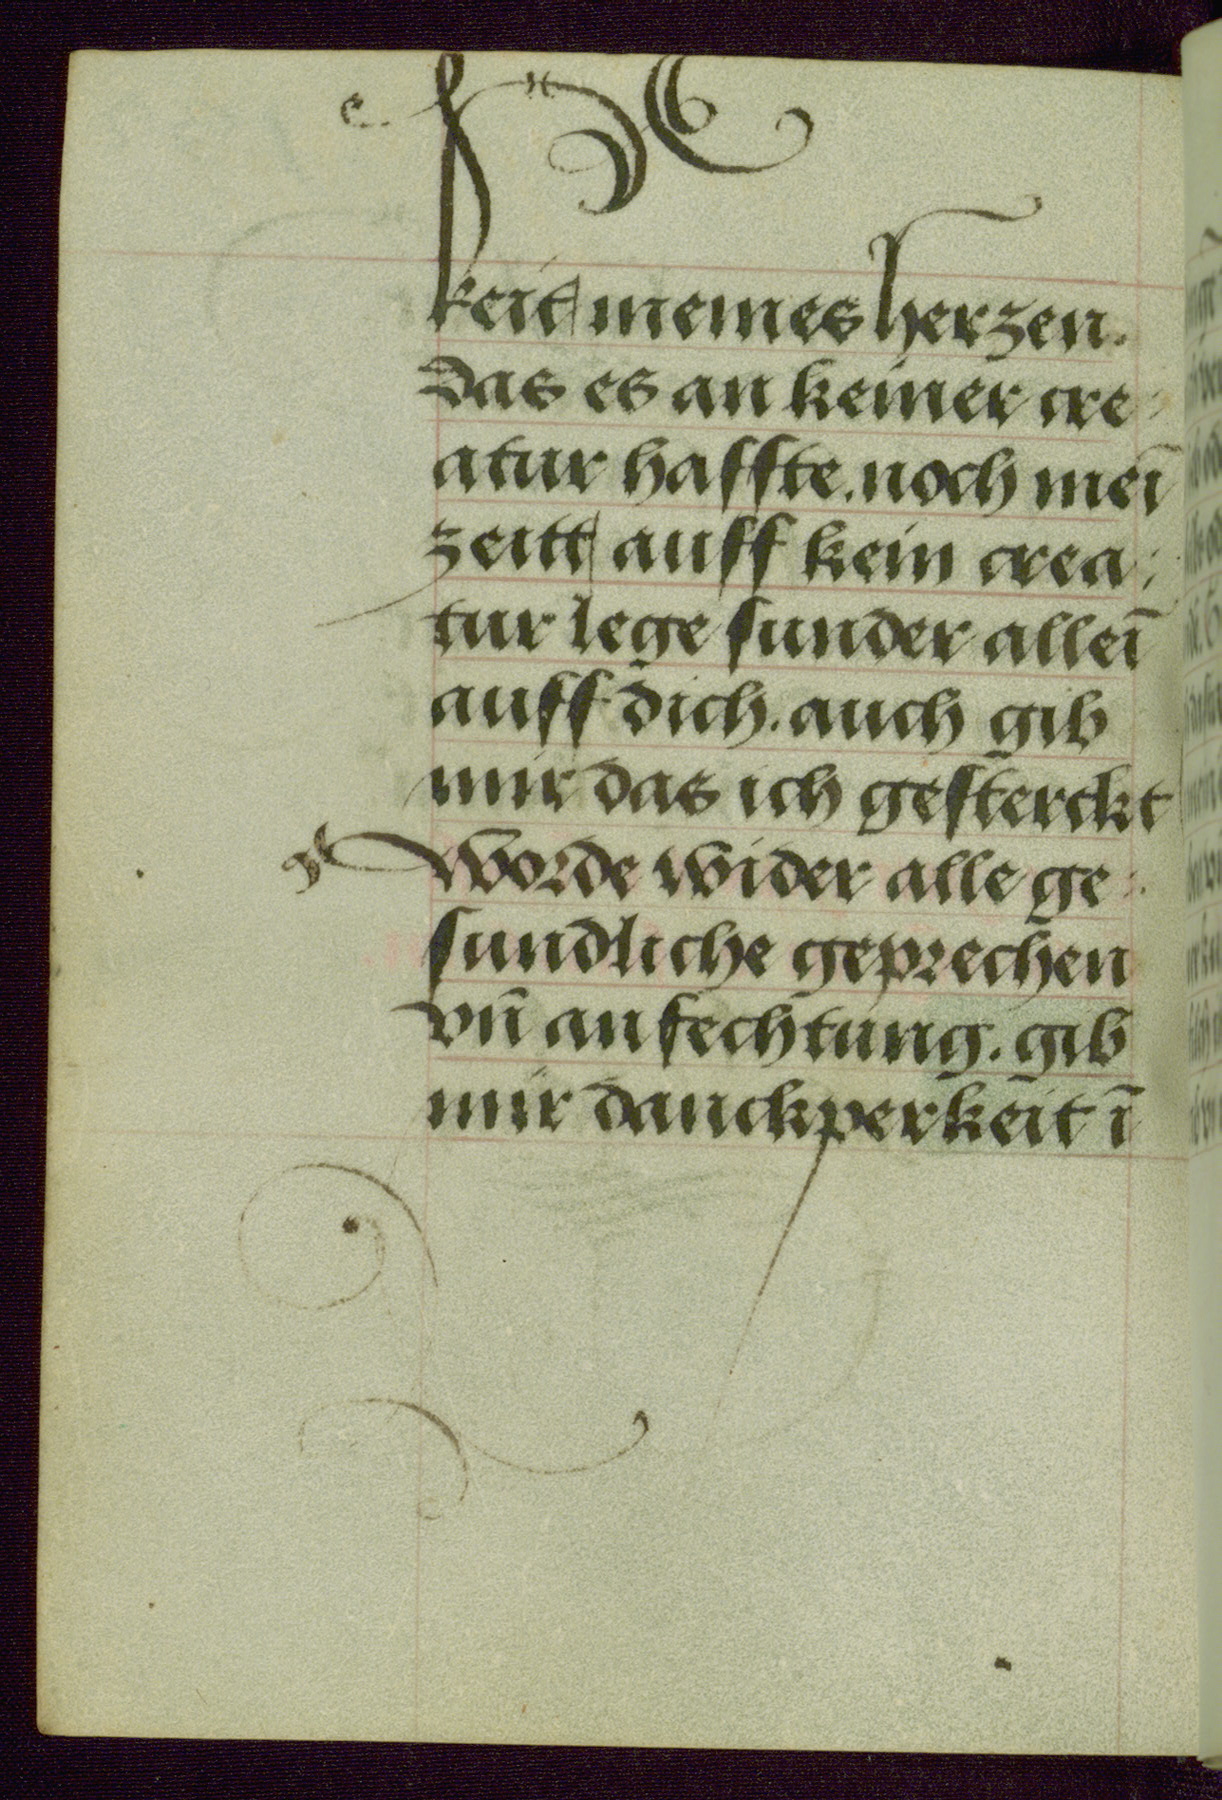 keit meines herzen.
das es an keiner cre⸗
atur haffte. noch mei̅
zeitt auff kein crea⸗
tur lege sunder allei̅
auff dich. auch gib
mir das ich gesterckt
worde wider alle ge⸗
sundliche geprechen
vn̅ anfechtung. gib
mir danckperkeit i̅